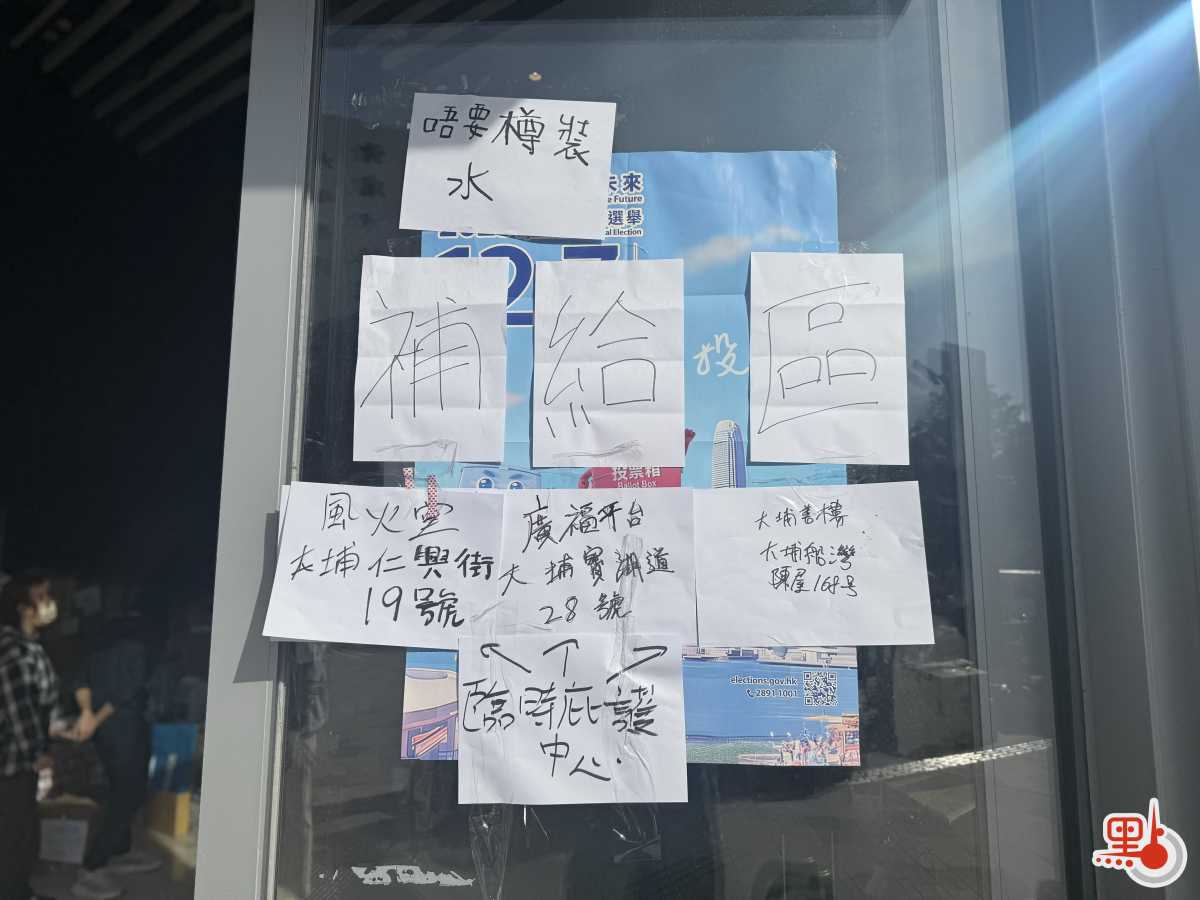 唔要樽裝
水
未來
e Future
選舉
al Election
12.7
補給區
投
投票箱
Ballot Box
風火堂
大埔仁興街
19號
廣福平台
大埔寶湖道
28號
大埔書樓
大埔船灣
陳屋168号
臨時庇護
中心.
elections.gov.hk
2891 1001
點